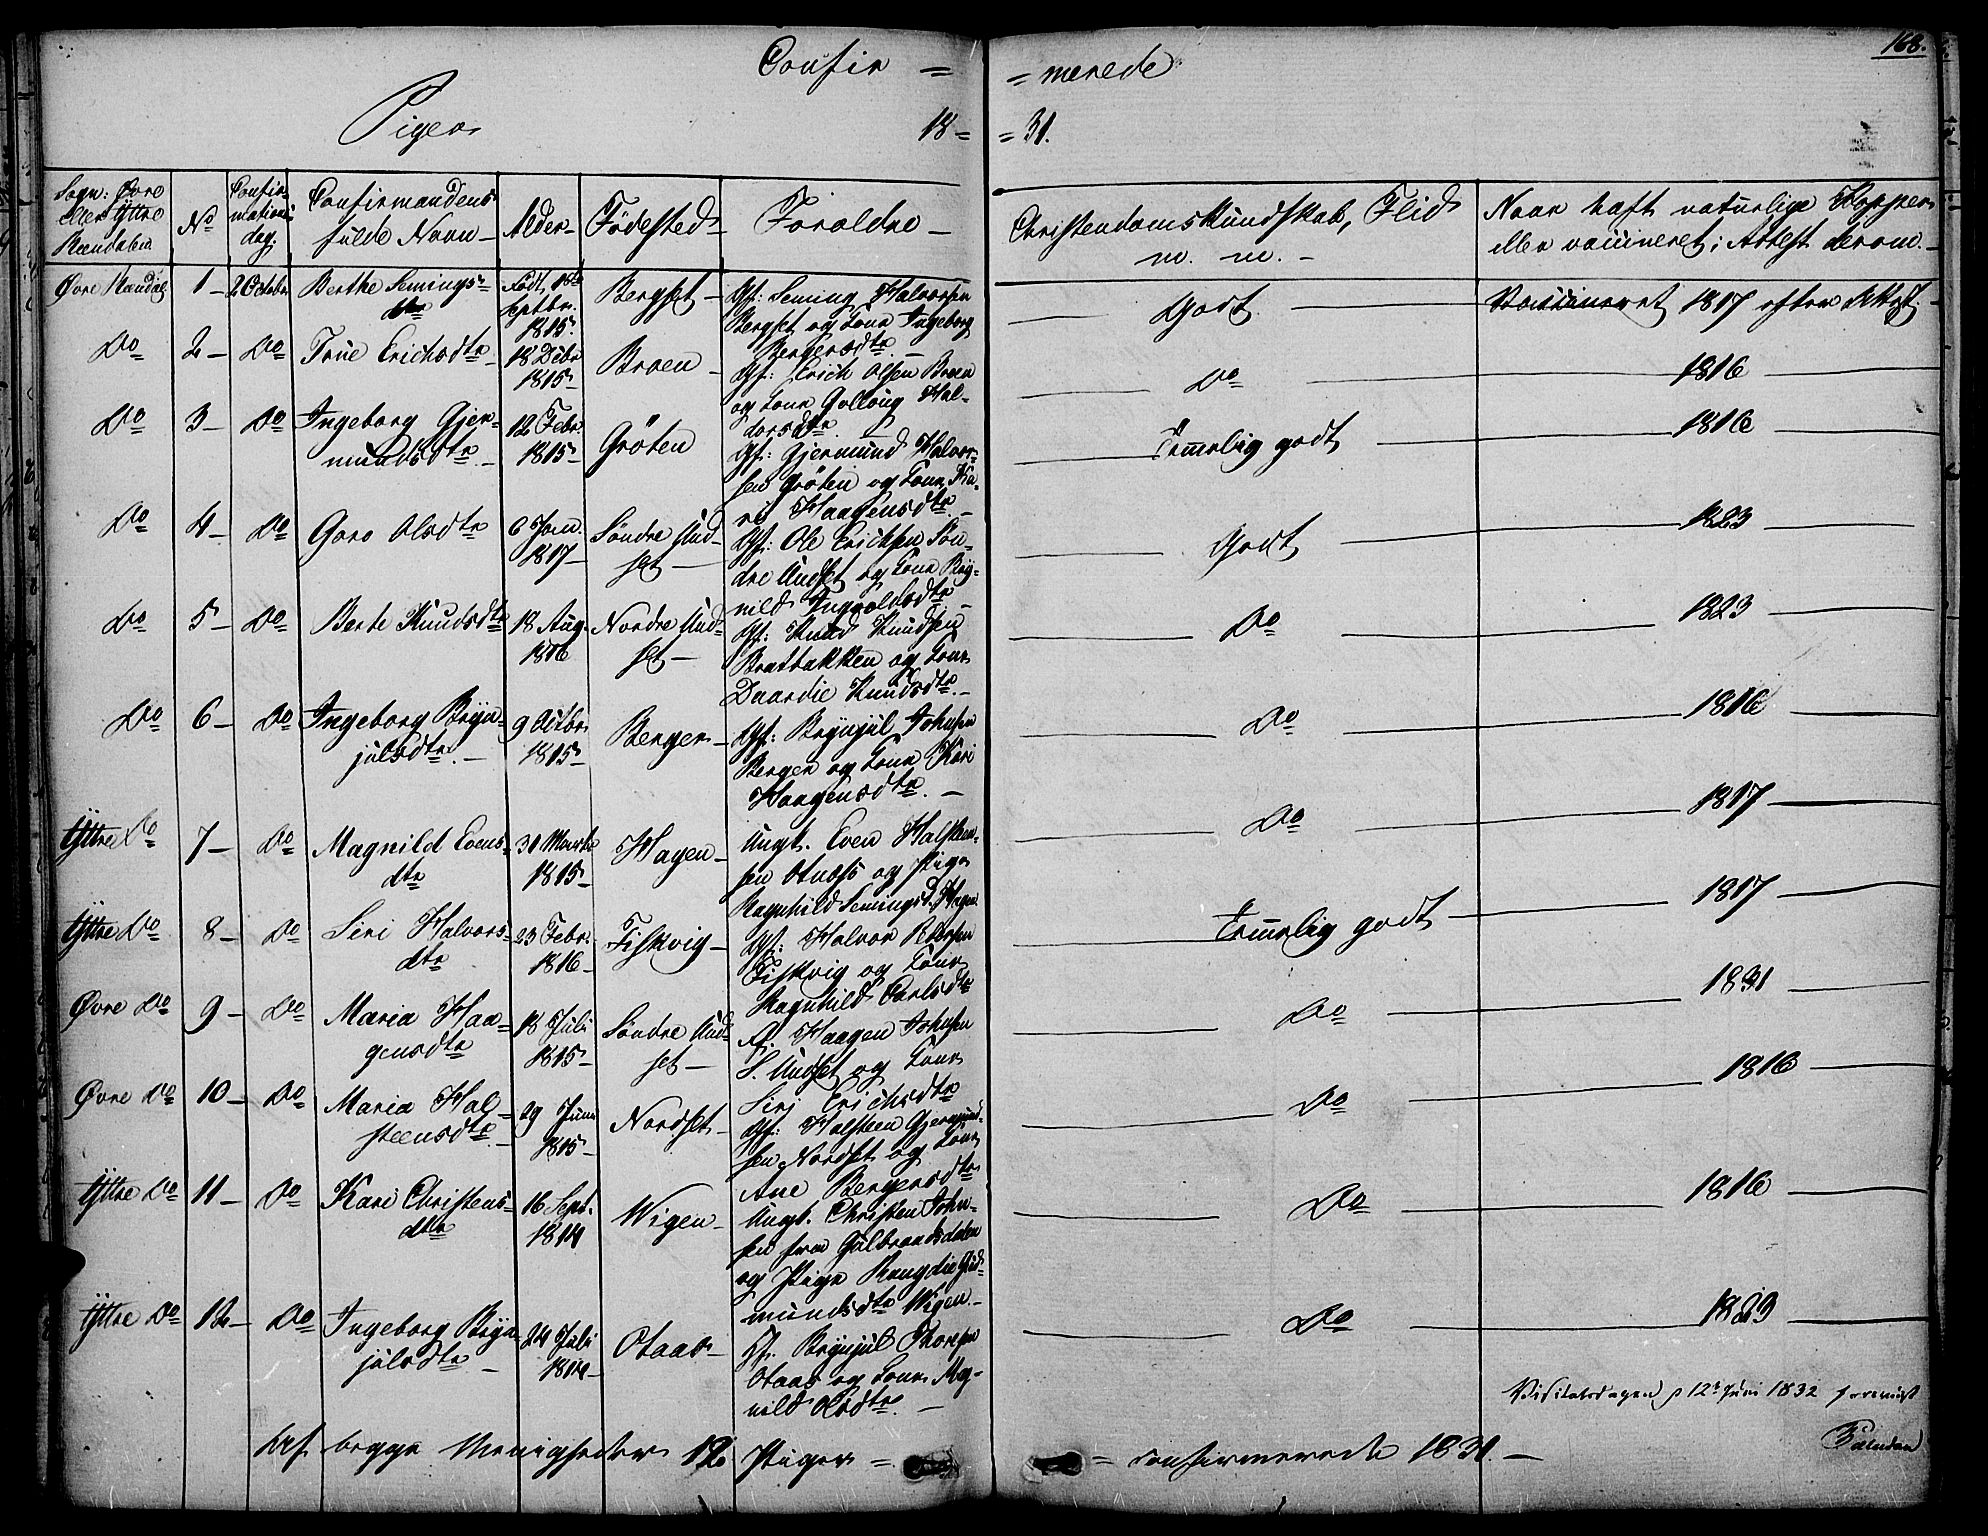 168.
Confir = = merede
Piger 18 = = 31.
Sogn: Øvre eller Yttre Rændalen
No
Confirmations dag.
Confirmandens fulde Navn
Alder
Fødested
Forældre
Christendomskundskab, Flid m. m.
Naar haft naturlige Kopper eller vaccineret; Attest derom.
Øvre Rændal 1 2 Octobr Berthe Semings= dtr Født 18de Septbr. 1815 Bergset Gf: Seming Halvorsen
Bergset og Kone Ingeborg
Bergersdtr
Godt Vaccineret 1817 efter Attest.
Do 2 Do True Erichsdtr 18 Decbr 1815 Broen Gf: Erich Olsen Broen
og Kone Gollaug Hal=
dorsdtr
Do 1816
Do 3 Do Ingeborg Gjer=
mundsdtr 12 Febr. 1815 Gröten Gf: Gjermund Halvor=
sen Gröten og Kone Ka=
ri Haagensdtr
Temmelig godt 1816
Do 4 Do Goro Olsdtr 6 Jan. 1817 Søndre Und=
set Gf: Ole Erichsen Søn=
dre Undset og Kone Rag=
nild Ingvoldsdtr
Godt 1823
Do 5 Do Berte Knudsdtr 18 Aug. 1816 Nordre Und=
set Gf: Knud Knudsen
Bratbakken og Kone
Daardie Knudsdtr.
Do 1823
Do 6 Do Ingeborg Bryn=
julsdtr. 9 Octbr 1815 Berger Gf: Brynjul Johnsen
Berger og Kone Kari
Haagensdtr.
Do 1816
Yttre Do 7 Do Magnild Evens=
dtr 31 Marts 1815 Hagen Ungk. Even Halsteen=
sen og Pige
Ragnhild Semingsd. Hagen
Do 1817
Yttre Do 8 Do Siri Halvors=
dtr 23 Febr. 1816 Fiskvig Gf: Halvor Pedersen
Fiskvig og Kone
Ragnhild Carlsdtr
Temmelig godt 1817
Øvre Do 9 Do Maria Haa=
gensdtr 18 Juli 1815 Søndre Und=
set Haagen Johnsen
S. Undset og Kone
Siri Erichsdtr
Do 1831
Øvre Do 10 Do Maria Hal=
steensdtr 29 Juni 1815 Nordset Gf: Halsteen Gjermund=
sen Nordset og Kone
Ane Bergersdtr
Do 1816
Yttre Do 11 Do Kari Christens=
dtr 16 Sept. 1814 Wigen Ungk. Christen John=
sen fra Gulbrandsdalen
og Pige Rangdie Gud=
mundsdtr Wigen.
Do 1816
Yttre Do 12 Do Ingeborg Bryn=
julsdtr 24 Juli 1814 Otaas Brynjul Thoresen
Otaas og Kone Mag=
nild Olsdtr.
Do 1823
Visitatsdagen d 12te Juni 1832 foreviist
Af begge Menigheder 12 Piger = = confirmerede 1831.